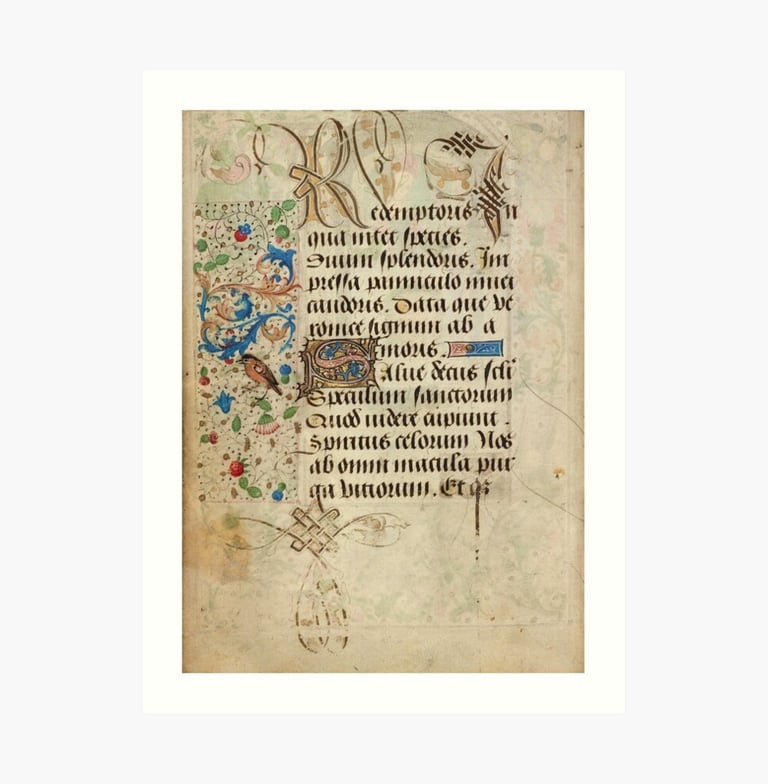 Redemptoris In
qua nitet species.
Diuini splendoris. Im
pressa panniculo niuei
candoris. Data que ve
ronice signum ab a
moris.
Salue decus scli
Speculum sanctorum
Quod uidere cupiunt.
Spiritus celorum Nos
ab omni macula pur
ga viciorum. Et